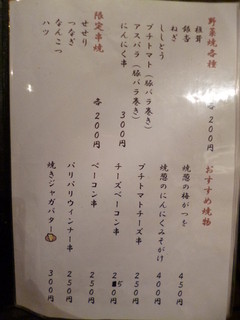 野菜焼各種
各200円
椎茸
銀杏
ねぎ
ししとう
プチトマト(豚バラ巻き)
アスパラ(豚バラ巻き)
にんにく串 300円
限定串焼
各200円
せせり
つなぎ
なんこつ
ハツ
おすすめ焼物
焼葱の梅がつを 450円
焼葱のにんにくみそがけ 400円
プチトマトチーズ串 250円
チーズベーコン串
ベーコン串 250円
パリパリウィンナー串 250円
焼きジャガバター 300円